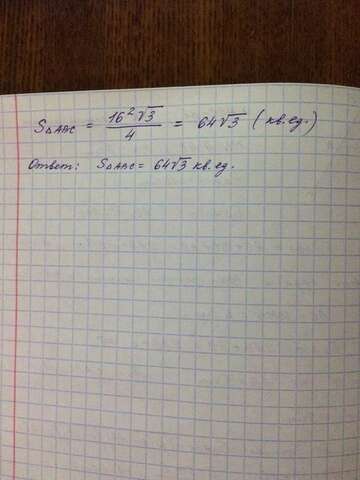 S△ABC = 16²√3/4 = 64√3 (кв.ед.)
Ответ: S△ABC = 64√3 кв.ед.